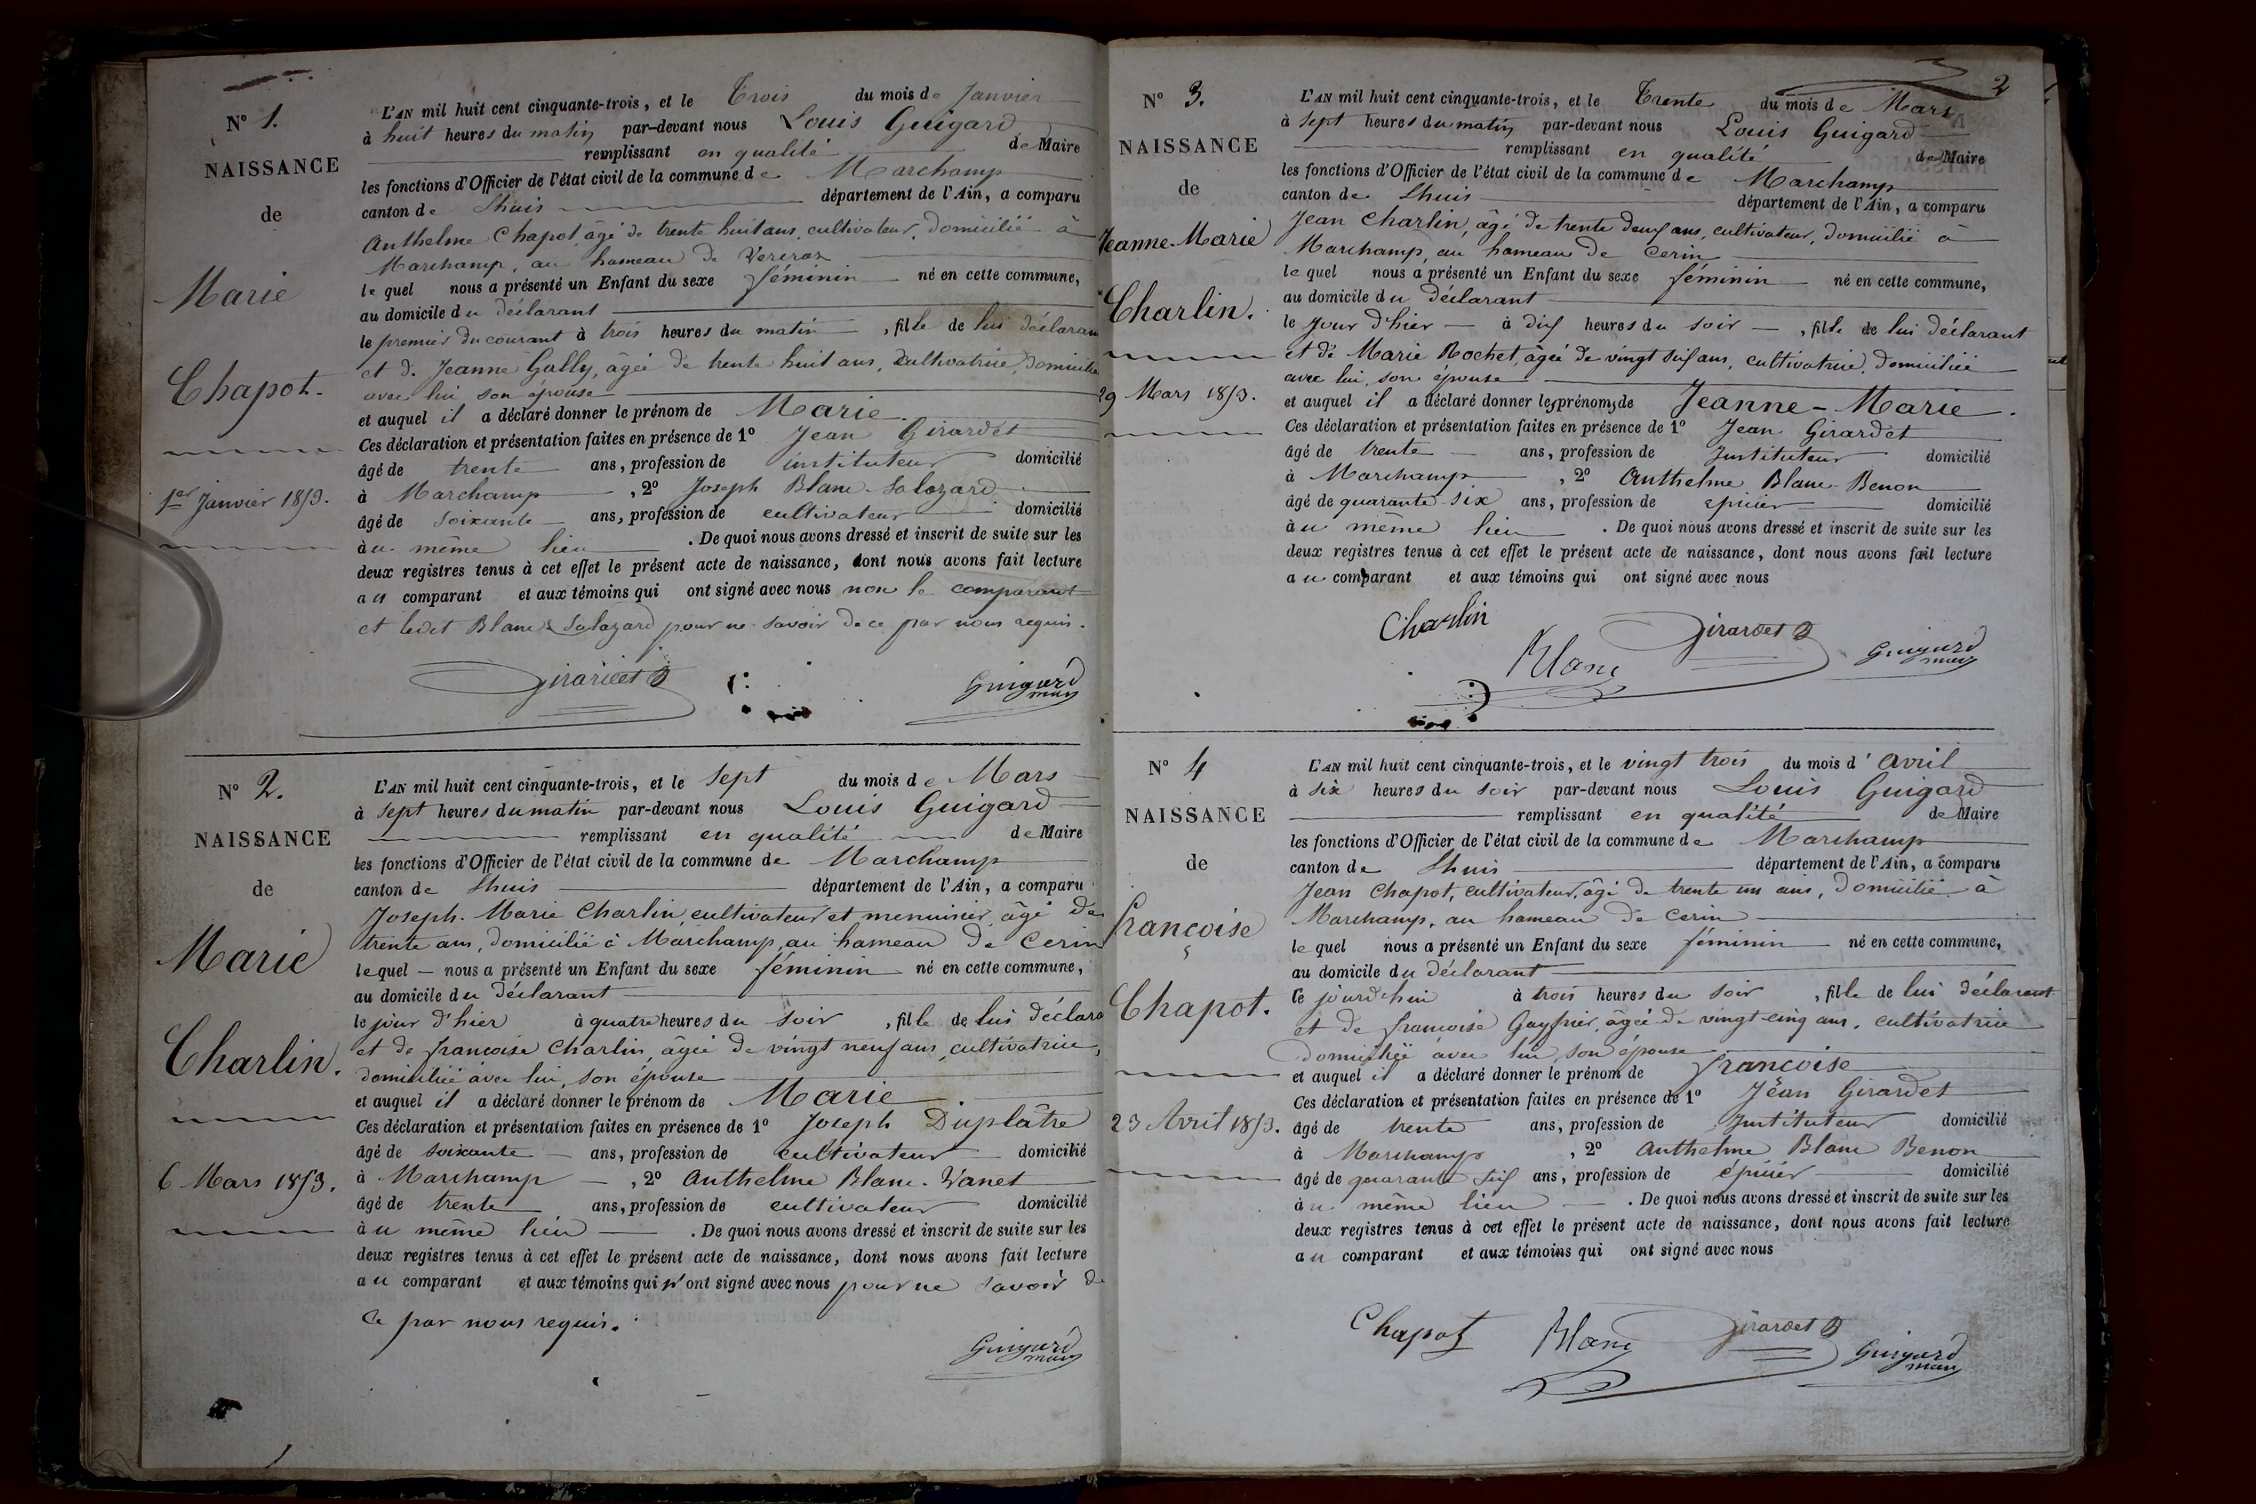 N° 1.
NAISSANCE
de
Marie
Chapot.
1er Janvier 1853.
L'AN mil huit cent cinquante-trois, et le Trois du mois de Janvier
à huit heures du matin par-devant nous Louis Guigard
remplissant en qualité de Maire
les fonctions d'Officier de l'état civil de la commune de Marchamp
canton de Lhuis département de l'Ain, a comparu
Anthelme Chapot, âgé de trente huit ans, cultivateur, domicilié à
Marchamp, au hameau de
le quel nous a présenté un Enfant du sexe féminin né en cette commune,
au domicile du déclarant
le premier du courant à trois heures du matin, fille de lui déclarant
et de Jeanne Gally, âgée de trente huit ans, cultivatrice, domiciliée
avec lui son épouse
et auquel il a déclaré donner le prénom de Marie.
Ces déclaration et présentation faites en présence de 1° Jean Girardet
âgé de trente ans, profession de instituteur domicilié
à Marchamp, 2° Joseph Blanc-Salozard
âgé de soixante ans, profession de cultivateur domicilié
au même lieu. De quoi nous avons dressé et inscrit de suite sur les
deux registres tenus à cet effet le présent acte de naissance, dont nous avons fait lecture
au comparant et aux témoins qui ont signé avec nous non le comparant
et ledit Blanc Salozard pour ne savoir de ce par nous requis.
Girardet Guigard maire
N° 2.
NAISSANCE
de
Marie
Charlin.
6 Mars 1853.
L'AN mil huit cent cinquante-trois, et le sept du mois de Mars
à sept heures du matin par-devant nous Louis Guigard
remplissant en qualité de Maire
les fonctions d'Officier de l'état civil de la commune de Marchamp
canton de Lhuis département de l'Ain, a comparu
Joseph-Marie Charlin, cultivateur et menuisier, âgé de
trente ans, domicilié à Marchamp, au hameau de Cerin
lequel nous a présenté un Enfant du sexe féminin né en cette commune,
au domicile du déclarant
le jour d'hier à quatre heures du soir, fille de lui déclara
et de françoise Charlin, âgée de vingt neuf ans, cultivatrice,
domiciliée avec lui, son épouse
et auquel il a déclaré donner le prénom de Marie.
Ces déclaration et présentation faites en présence de 1° Joseph Duplâtre
âgé de soixante ans, profession de cultivateur domicilié
à Marchamp, 2° Anthelme Blanc-Vanet
âgé de trente ans, profession de cultivateur domicilié
au même lieu. De quoi nous avons dressé et inscrit de suite sur les
deux registres tenus à cet effet le présent acte de naissance, dont nous avons fait lecture
au comparant et aux témoins qui n'ont signé avec nous pour ne savoir de
ce par nous requis.
Guigard maire
2
N° 3.
NAISSANCE
de
Jeanne-Marie
Charlin.
29 Mars 1853.
L'AN mil huit cent cinquante-trois, et le Trente du mois de Mars
à sept heures du matin par-devant nous Louis Guigard
remplissant en qualité de Maire
les fonctions d'Officier de l'état civil de la commune de Marchamp
canton de Lhuis département de l'Ain, a comparu
Jean Charlin, âgé de trente deux ans, cultivateur, domicilié à
Marchamp, au hameau de Cerin
le quel nous a présenté un Enfant du sexe féminin né en cette commune,
au domicile du déclarant
le jour d'hier à dix heures du soir, fille de lui déclarant
et de Marie Rochet, âgée de vingt six ans, cultivatrice, domiciliée
avec lui, son épouse
et auquel il a déclaré donner les prénoms de Jeanne-Marie.
Ces déclaration et présentation faites en présence de 1° Jean Girardet
âgé de trente ans, profession de Instituteur domicilié
à Marchamp, 2° Anthelme Blanc-Benon
âgé de quarante-six ans, profession de épicier domicilié
au même lieu. De quoi nous avons dressé et inscrit de suite sur les
deux registres tenus à cet effet le présent acte de naissance, dont nous avons fait lecture
au comparant et aux témoins qui ont signé avec nous
Charlin Blanc Girardet Guigard maire
N° 4
NAISSANCE
de
françoise
Chapot.
23 Avril 1853.
L'AN mil huit cent cinquante-trois, et le vingt trois du mois d'avril
à six heures du soir par-devant nous Louis Guigard
remplissant en qualité de Maire
les fonctions d'Officier de l'état civil de la commune de Marchamp
canton de Lhuis département de l'Ain, a comparu
Jean Chapot, cultivateur, âgé de trente un ans, domicilié à
Marchamp, au hameau de Cerin
le quel nous a présenté un Enfant du sexe féminin né en cette commune,
au domicile du déclarant
Ce jourd'hui à trois heures du soir, fille de lui déclarant
et de françoise âgée de vingt cinq ans, cultivatrice
domiciliée avec lui, son épouse
et auquel il a déclaré donner le prénom de françoise
Ces déclaration et présentation faites en présence de 1° Jean Girardet
âgé de trente ans, profession de Instituteur domicilié
à Marchamp, 2° Anthelme Blanc Benon
âgé de quarante six ans, profession de épicier domicilié
au même lieu. De quoi nous avons dressé et inscrit de suite sur les
deux registres tenus à cet effet le présent acte de naissance, dont nous avons fait lecture
au comparant et aux témoins qui ont signé avec nous
Chapot Blanc Girardet Guigard maire